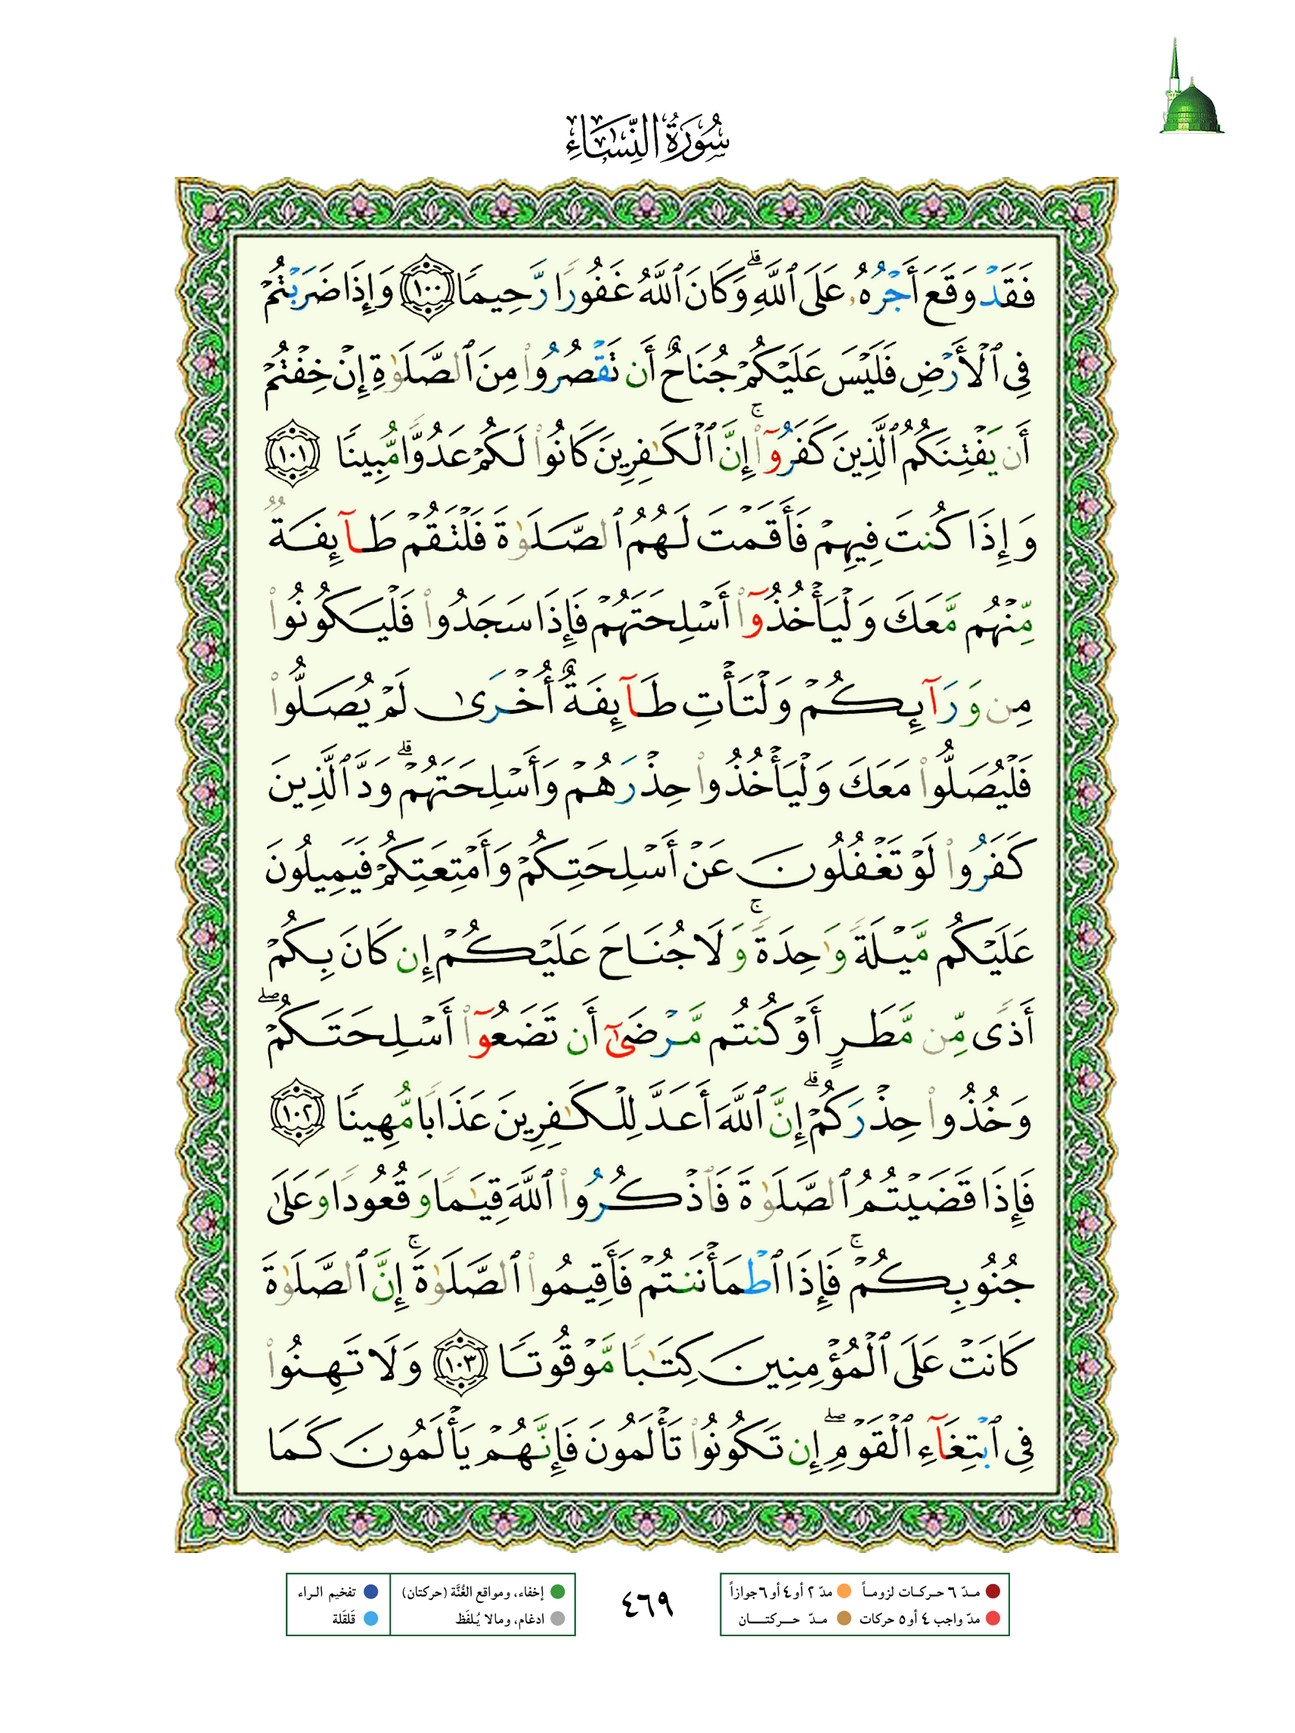 سُورَةُ النِّسَاءِ
فَقَدْ وَقَعَ أَجْرُهُۥ عَلَى ٱللَّهِ ۗ وَكَانَ ٱللَّهُ غَفُورًا رَّحِيمًا ١٠٠ وَإِذَا ضَرَبْتُمْ
فِى ٱلْأَرْضِ فَلَيْسَ عَلَيْكُمْ جُنَاحٌ أَن تَقْصُرُوا۟ مِنَ ٱلصَّلَوٰةِ إِنْ خِفْتُمْ
أَن يَفْتِنَكُمُ ٱلَّذِينَ كَفَرُوٓا۟ ۚ إِنَّ ٱلْكَـٰفِرِينَ كَانُوا۟ لَكُمْ عَدُوًّا مُّبِينًا ١٠١
وَإِذَا كُنتَ فِيهِمْ فَأَقَمْتَ لَهُمُ ٱلصَّلَوٰةَ فَلْتَقُمْ طَآئِفَةٌ
مِّنْهُم مَّعَكَ وَلْيَأْخُذُوٓا۟ أَسْلِحَتَهُمْ فَإِذَا سَجَدُوا۟ فَلْيَكُونُوا۟
مِن وَرَآئِكُمْ وَلْتَأْتِ طَآئِفَةٌ أُخْرَىٰ لَمْ يُصَلُّوا۟
فَلْيُصَلُّوا۟ مَعَكَ وَلْيَأْخُذُوا۟ حِذْرَهُمْ وَأَسْلِحَتَهُمْ ۗ وَدَّ ٱلَّذِينَ
كَفَرُوا۟ لَوْ تَغْفُلُونَ عَنْ أَسْلِحَتِكُمْ وَأَمْتِعَتِكُمْ فَيَمِيلُونَ
عَلَيْكُم مَّيْلَةً وَٰحِدَةً ۚ وَلَا جُنَاحَ عَلَيْكُمْ إِن كَانَ بِكُمْ
أَذًى مِّن مَّطَرٍ أَوْ كُنتُم مَّرْضَىٰٓ أَن تَضَعُوٓا۟ أَسْلِحَتَكُمْ ۖ
وَخُذُوا۟ حِذْرَكُمْ ۗ إِنَّ ٱللَّهَ أَعَدَّ لِلْكَـٰفِرِينَ عَذَابًا مُّهِينًا ١٠٢
فَإِذَا قَضَيْتُمُ ٱلصَّلَوٰةَ فَٱذْكُرُوا۟ ٱللَّهَ قِيَـٰمًا وَقُعُودًا وَعَلَىٰ
جُنُوبِكُمْ ۚ فَإِذَا ٱطْمَأْنَنتُمْ فَأَقِيمُوا۟ ٱلصَّلَوٰةَ ۚ إِنَّ ٱلصَّلَوٰةَ
كَانَتْ عَلَى ٱلْمُؤْمِنِينَ كِتَـٰبًا مَّوْقُوتًا ١٠٣ وَلَا تَهِنُوا۟
فِى ٱبْتِغَآءِ ٱلْقَوْمِ ۖ إِن تَكُونُوا۟ تَأْلَمُونَ فَإِنَّهُمْ يَأْلَمُونَ كَمَا
مدّ ٦ حركات لزوماً مدّ ٢ أو ٤ أو ٦ جوازاً
مدّ واجب ٤ أو ٥ حركات مدّ حركتان
٤٦٩
إخفاء، ومواقع الغُنَّة (حركتان) تفخيم الراء
ادغام، ومالا يُلفَظ قلقلة